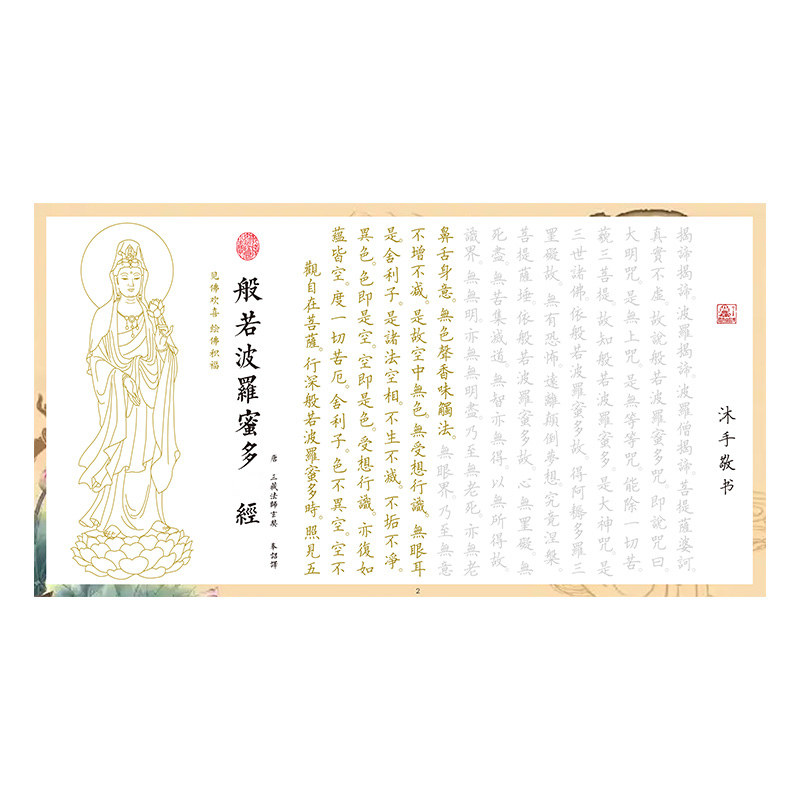 见佛欢喜 绘佛积福
般若波羅蜜多 經
唐 三藏法師玄奘 奉詔譯
觀自在菩薩。行深般若波羅蜜多時。照見五
蘊皆空。度一切苦厄。舍利子。色不異空。空不
異色。色即是空。空即是色。受想行識。亦復如
是。舍利子。是諸法空相。不生不滅。不垢不淨。
不增不減。是故空中無色。無受想行識。無眼耳
鼻舌身意。無色聲香味觸法。無眼界。乃至無意
識界。無無明。亦無無明盡。乃至無老死。亦無老
死盡。無苦集滅道。無智亦無得。以無所得故。
菩提薩埵。依般若波羅蜜多故。心無罣礙。無
罣礙故。無有恐怖。遠離顛倒夢想。究竟涅槃。
三世諸佛。依般若波羅蜜多故。得阿耨多羅三
藐三菩提。故知般若波羅蜜多。是大神咒。是
大明咒。是無上咒。是無等等咒。能除一切苦。
真實不虛。故說般若波羅蜜多咒。即說咒曰。
揭諦揭諦。波羅揭諦。波羅僧揭諦。菩提薩婆訶。
沐手敬书
2